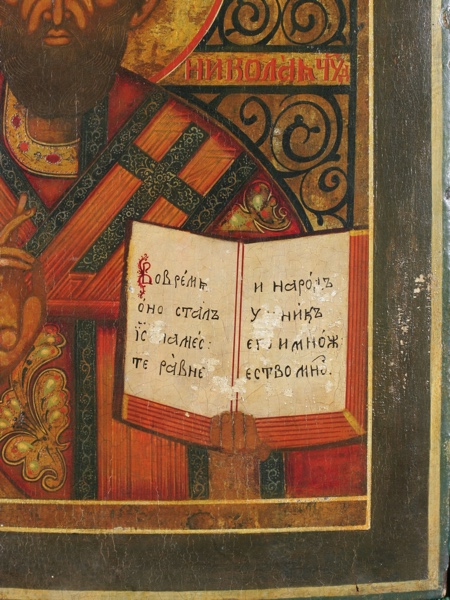 НИКОЛАЙ
Вовре́мѧ
оно стал̾ъ
і҃с намес:
те ра́вне
и наро́дъ
его имно́ж
ество